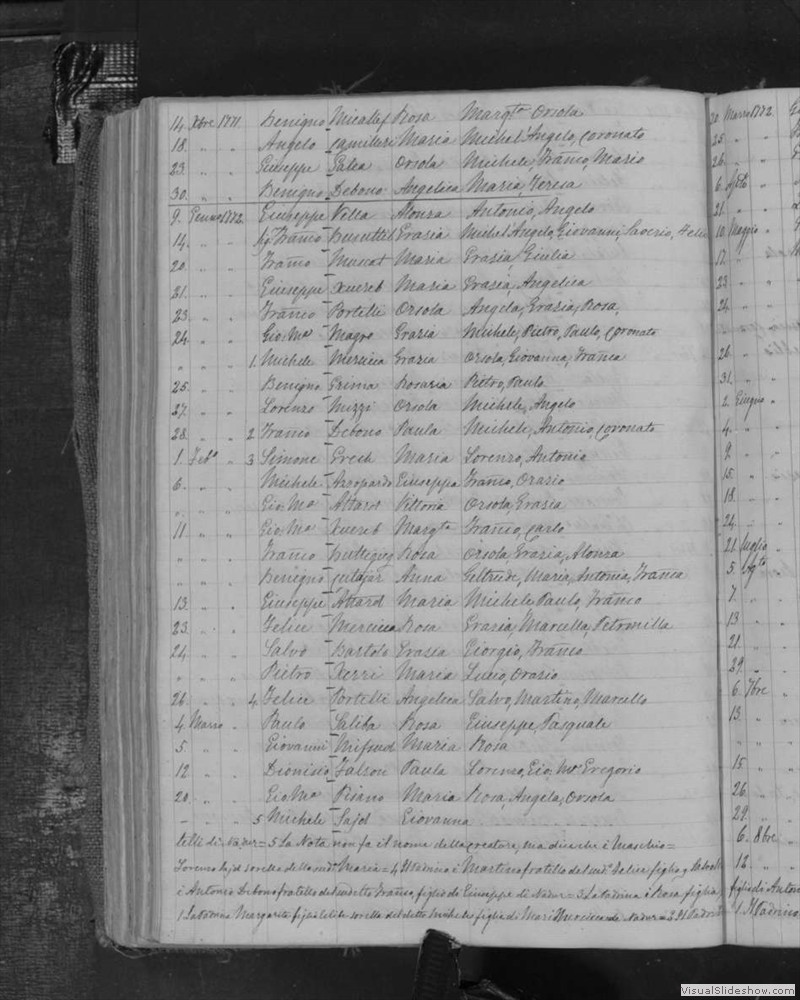 14. Xbre 1771 Benigno Micallef Rosa Margta Orsola
18. " " Angelo Camilleri Maria Michel'Angelo, Coronato
23. " " Giuseppe Galea Orsola Michele, Franco, Mario
30. " " Benigno Debono Angelica Maria, Teresa
9. Genno 1772. Giuseppe Vella Alonza Antonio, Angelo
14. " " Franco Busuttil Grazia Michel'Angelo, Giovanni, Saverio, Felice
20. " " Franco Muscat Maria Grazia, Giulia
21. " " Giuseppe Xuereb Maria Grazia, Angelica
23. " " Franco Portelli Orsola Angela, Grazia, Rosa,
24. " " Gio: Ma Magro Grazia Michele, Pietro, Paulo, Coronato
" " " 1. Michele Mercieca Grazia Orsola, Giovanna, Franca
25. " " Benigno Grima Rosaria Pietro, Paulo
27. " " Lorenzo Mizzi Orsola Michele, Angelo
28. " " 2 Franco Debono Paula Michele, Antonio, Coronato
1. Febo " 3 Simone Grech Maria Lorenzo, Antonia
6. " " Michele Azzopardo Giuseppa Franco, Orazio
" " " Gio: Ma Attard Vittoria Orsola, Grazia
11 " " Gio: Ma Xuereb Margta Franco, Carlo
" " " Franco Buttigieg Rosa Orsola, Grazia, Alonza
" " " Benigno Cutajar Anna Geltrude, Maria, Antonia, Franca
13. " " Giuseppe Attard Maria Michele, Paulo, Franco
23. " " Felice Mercieca Rosa Grazia, Marcella, Petronilla
24. " " Salvo Bartolo Grazia Giorgio, Franco
" " " Pietro Xerri Maria Lucio, Orazio
26. " " 4 Felice Portelli Angelica Salvo, Martino, Marcello
4. Marzo " Paulo Saliba Rosa Giuseppe, Pasquale
5 " " Giovanni Mifsud Maria Rosa
12 " " Dionisio Falson Paula Lorenzo, Gio: Ma Gregorio
20. " " Gio: Ma Pisano Maria Rosa, Angela, Orsola
" " 5 Michele Sajd Giovanna
telli di Nadur = 5 La Nota non fa il nome della creatura, ma dice che è Maschio =
Lorenzo Sajd sorella della Maria = 4 Il Padrino è Martino fratello del Felice figlio di
è Antonio Debono fratello del sudetto Franco, figlio di Giuseppe di Nadur = 3 La Padrina è Rosa figlia
1 La Padrina Margarita sorella del detto Michele figlia di Mercieca di Nadur = 2 Il Padrino
20. Marzo 1772.
25. " "
26. " "
6. "
21. " "
10. Maggio "
17. " "
23 " "
24. " "
26. " "
31. " "
2. Giugno "
4. " "
9. " "
15. " "
18. " "
24. " "
21. Luglio "
5. Agto "
7. " "
13 " "
21. " "
29. " "
6. 7bre "
13. " "
" " "
15. " "
26. " "
29. " "
6. 8bre "
12 " "
figlio di Antonio
1. Il Padrino
VisualSlideshow.com